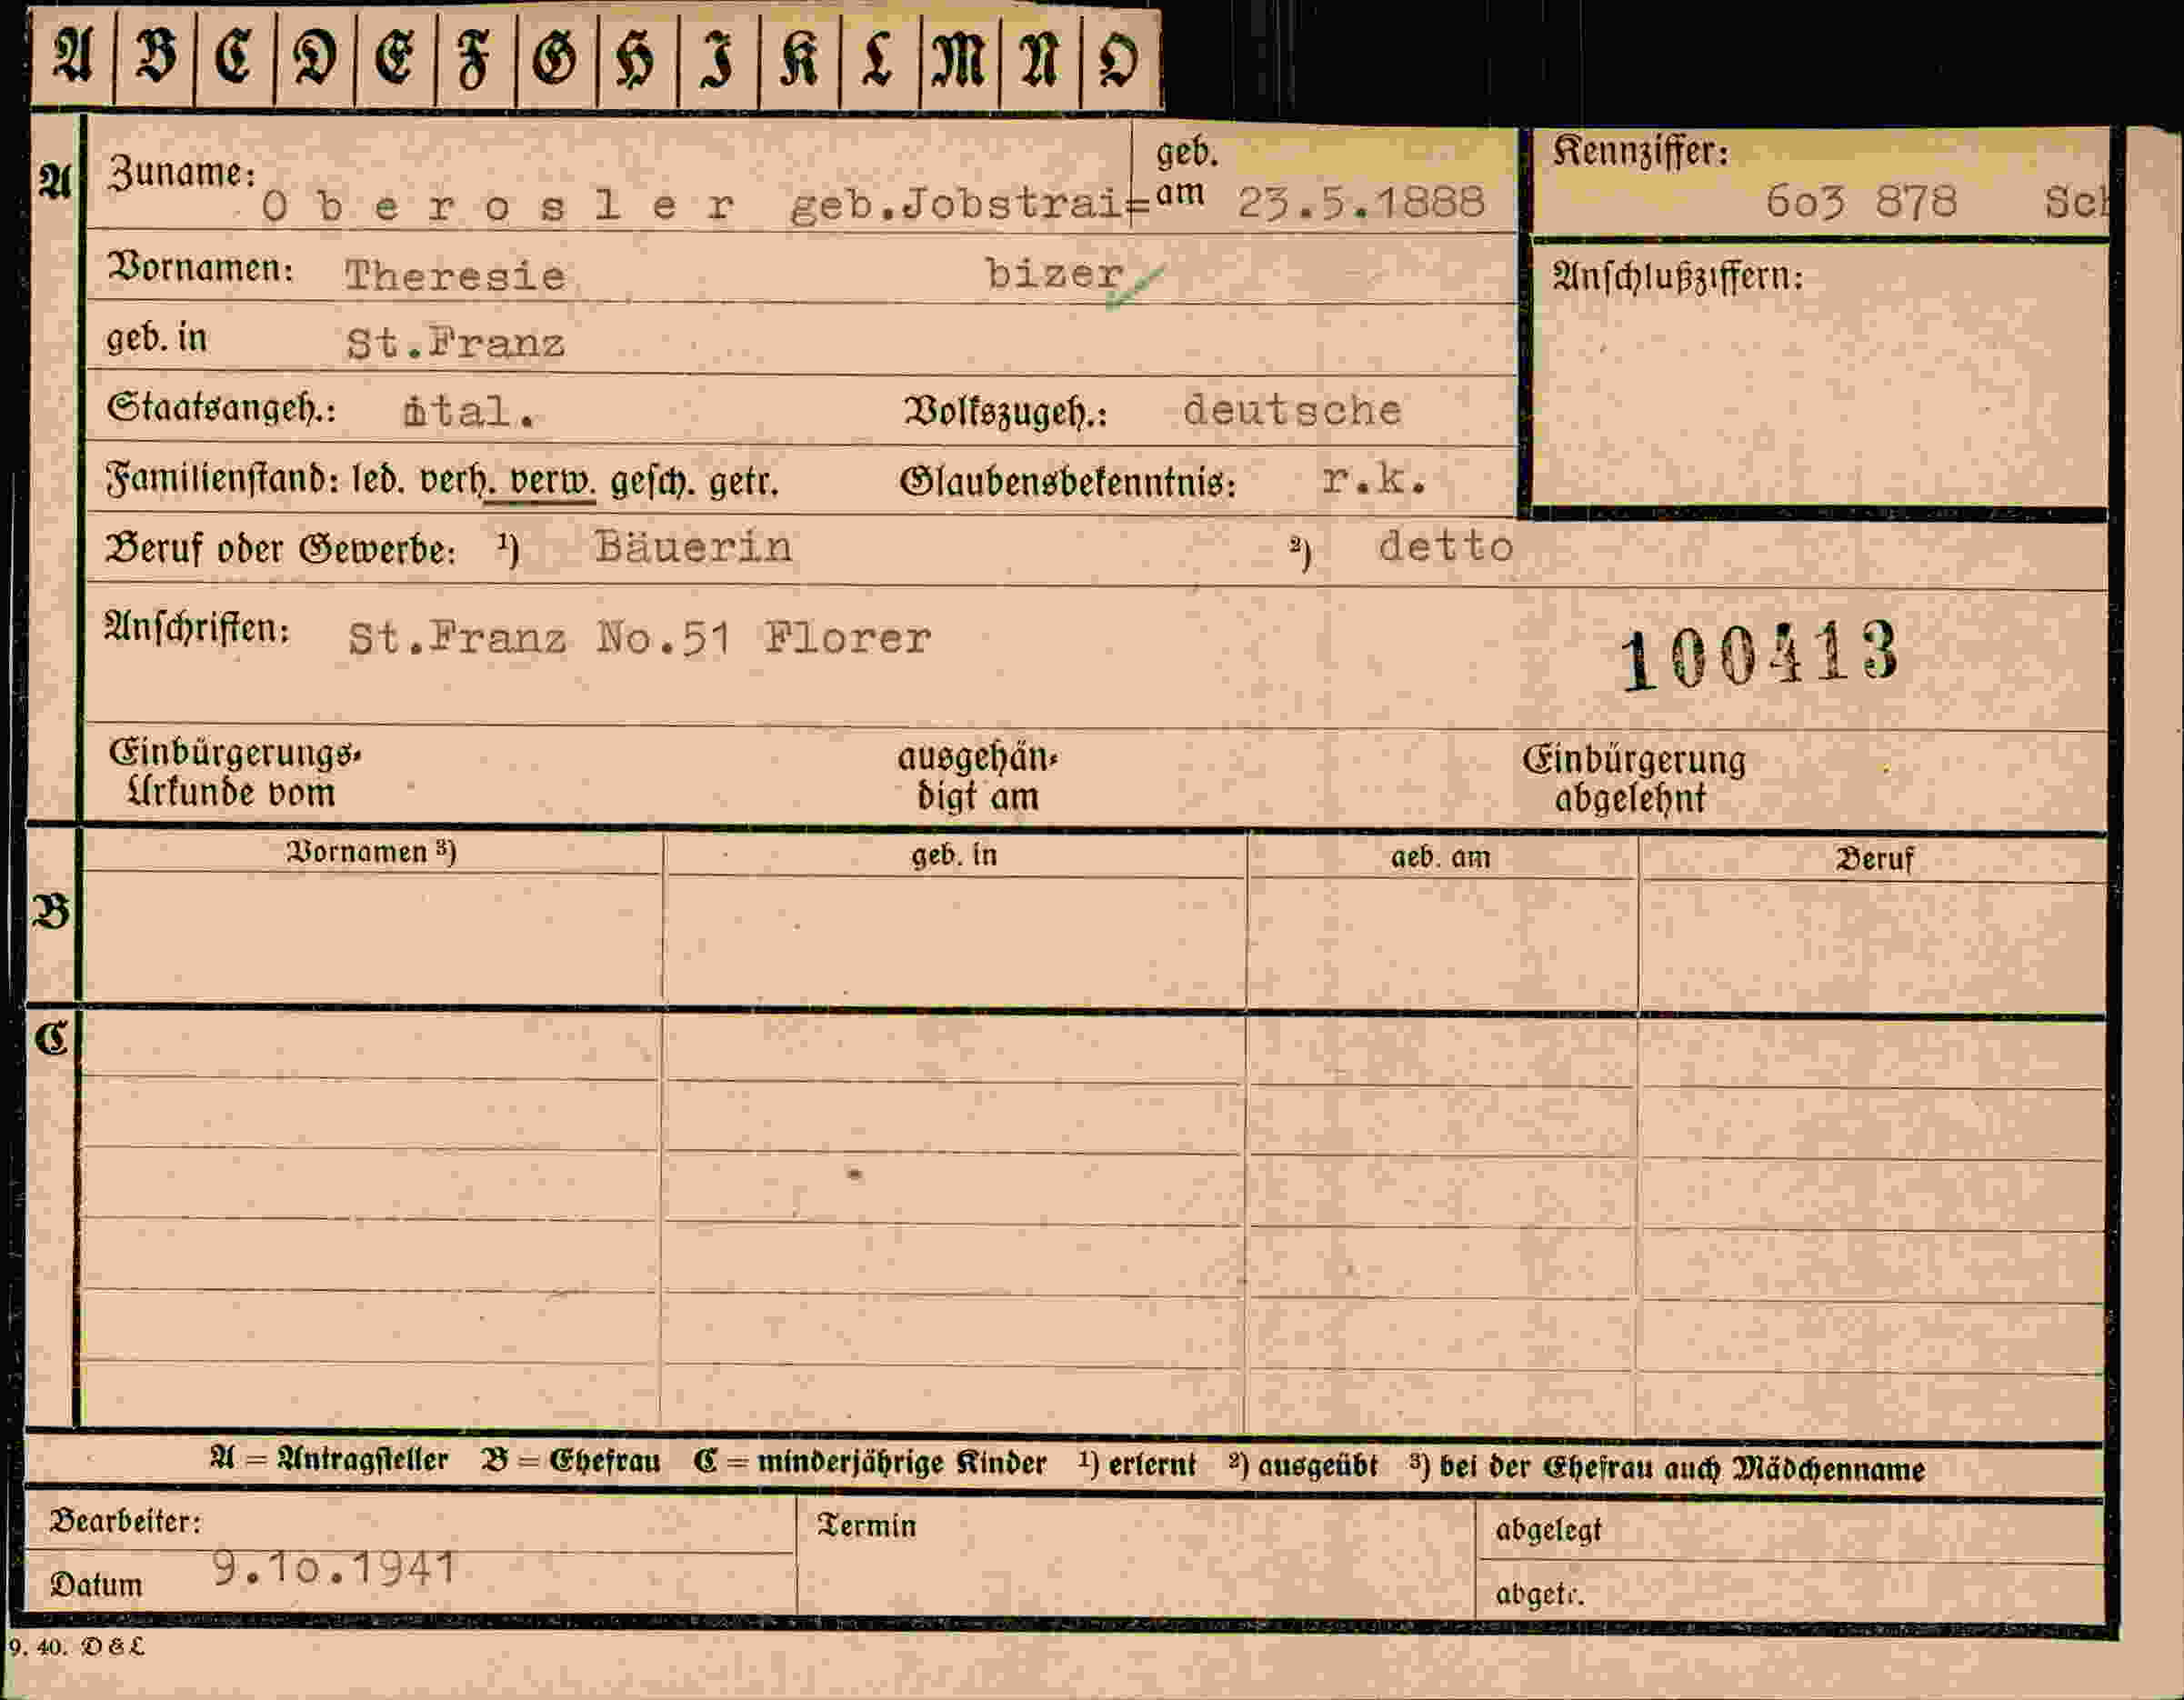 A B C D E F G H I K L M N O
A Zuname: Oberosler geb.Jobstrai= geb. am 23.5.1888 Kennziffer: 603 878 Sch
Vornamen: Theresie bizer Anschlußziffern:
geb. in St.Franz
Staatsangeh.: ital. Volkszugeh.: deutsche
Familienstand: led. verh. verw. gesch. getr. Glaubensbekenntnis: r.k.
Beruf oder Gewerbe: ¹) Bäuerin ²) detto
Anschriften: St.Franz No.51 Florer 100413
Einbürgerungs- ausgehän- Einbürgerung
Urkunde vom digt am abgelehnt
Vornamen ³) geb. in geb. am Beruf
B
C
A = Antragsteller B = Ehefrau C = minderjährige Kinder ¹) erlernt ²) ausgeübt ³) bei der Ehefrau auch Mädchenname
Bearbeiter: Termin abgelegt
Datum 9.10.1941 abgetr.
9. 40. D & L